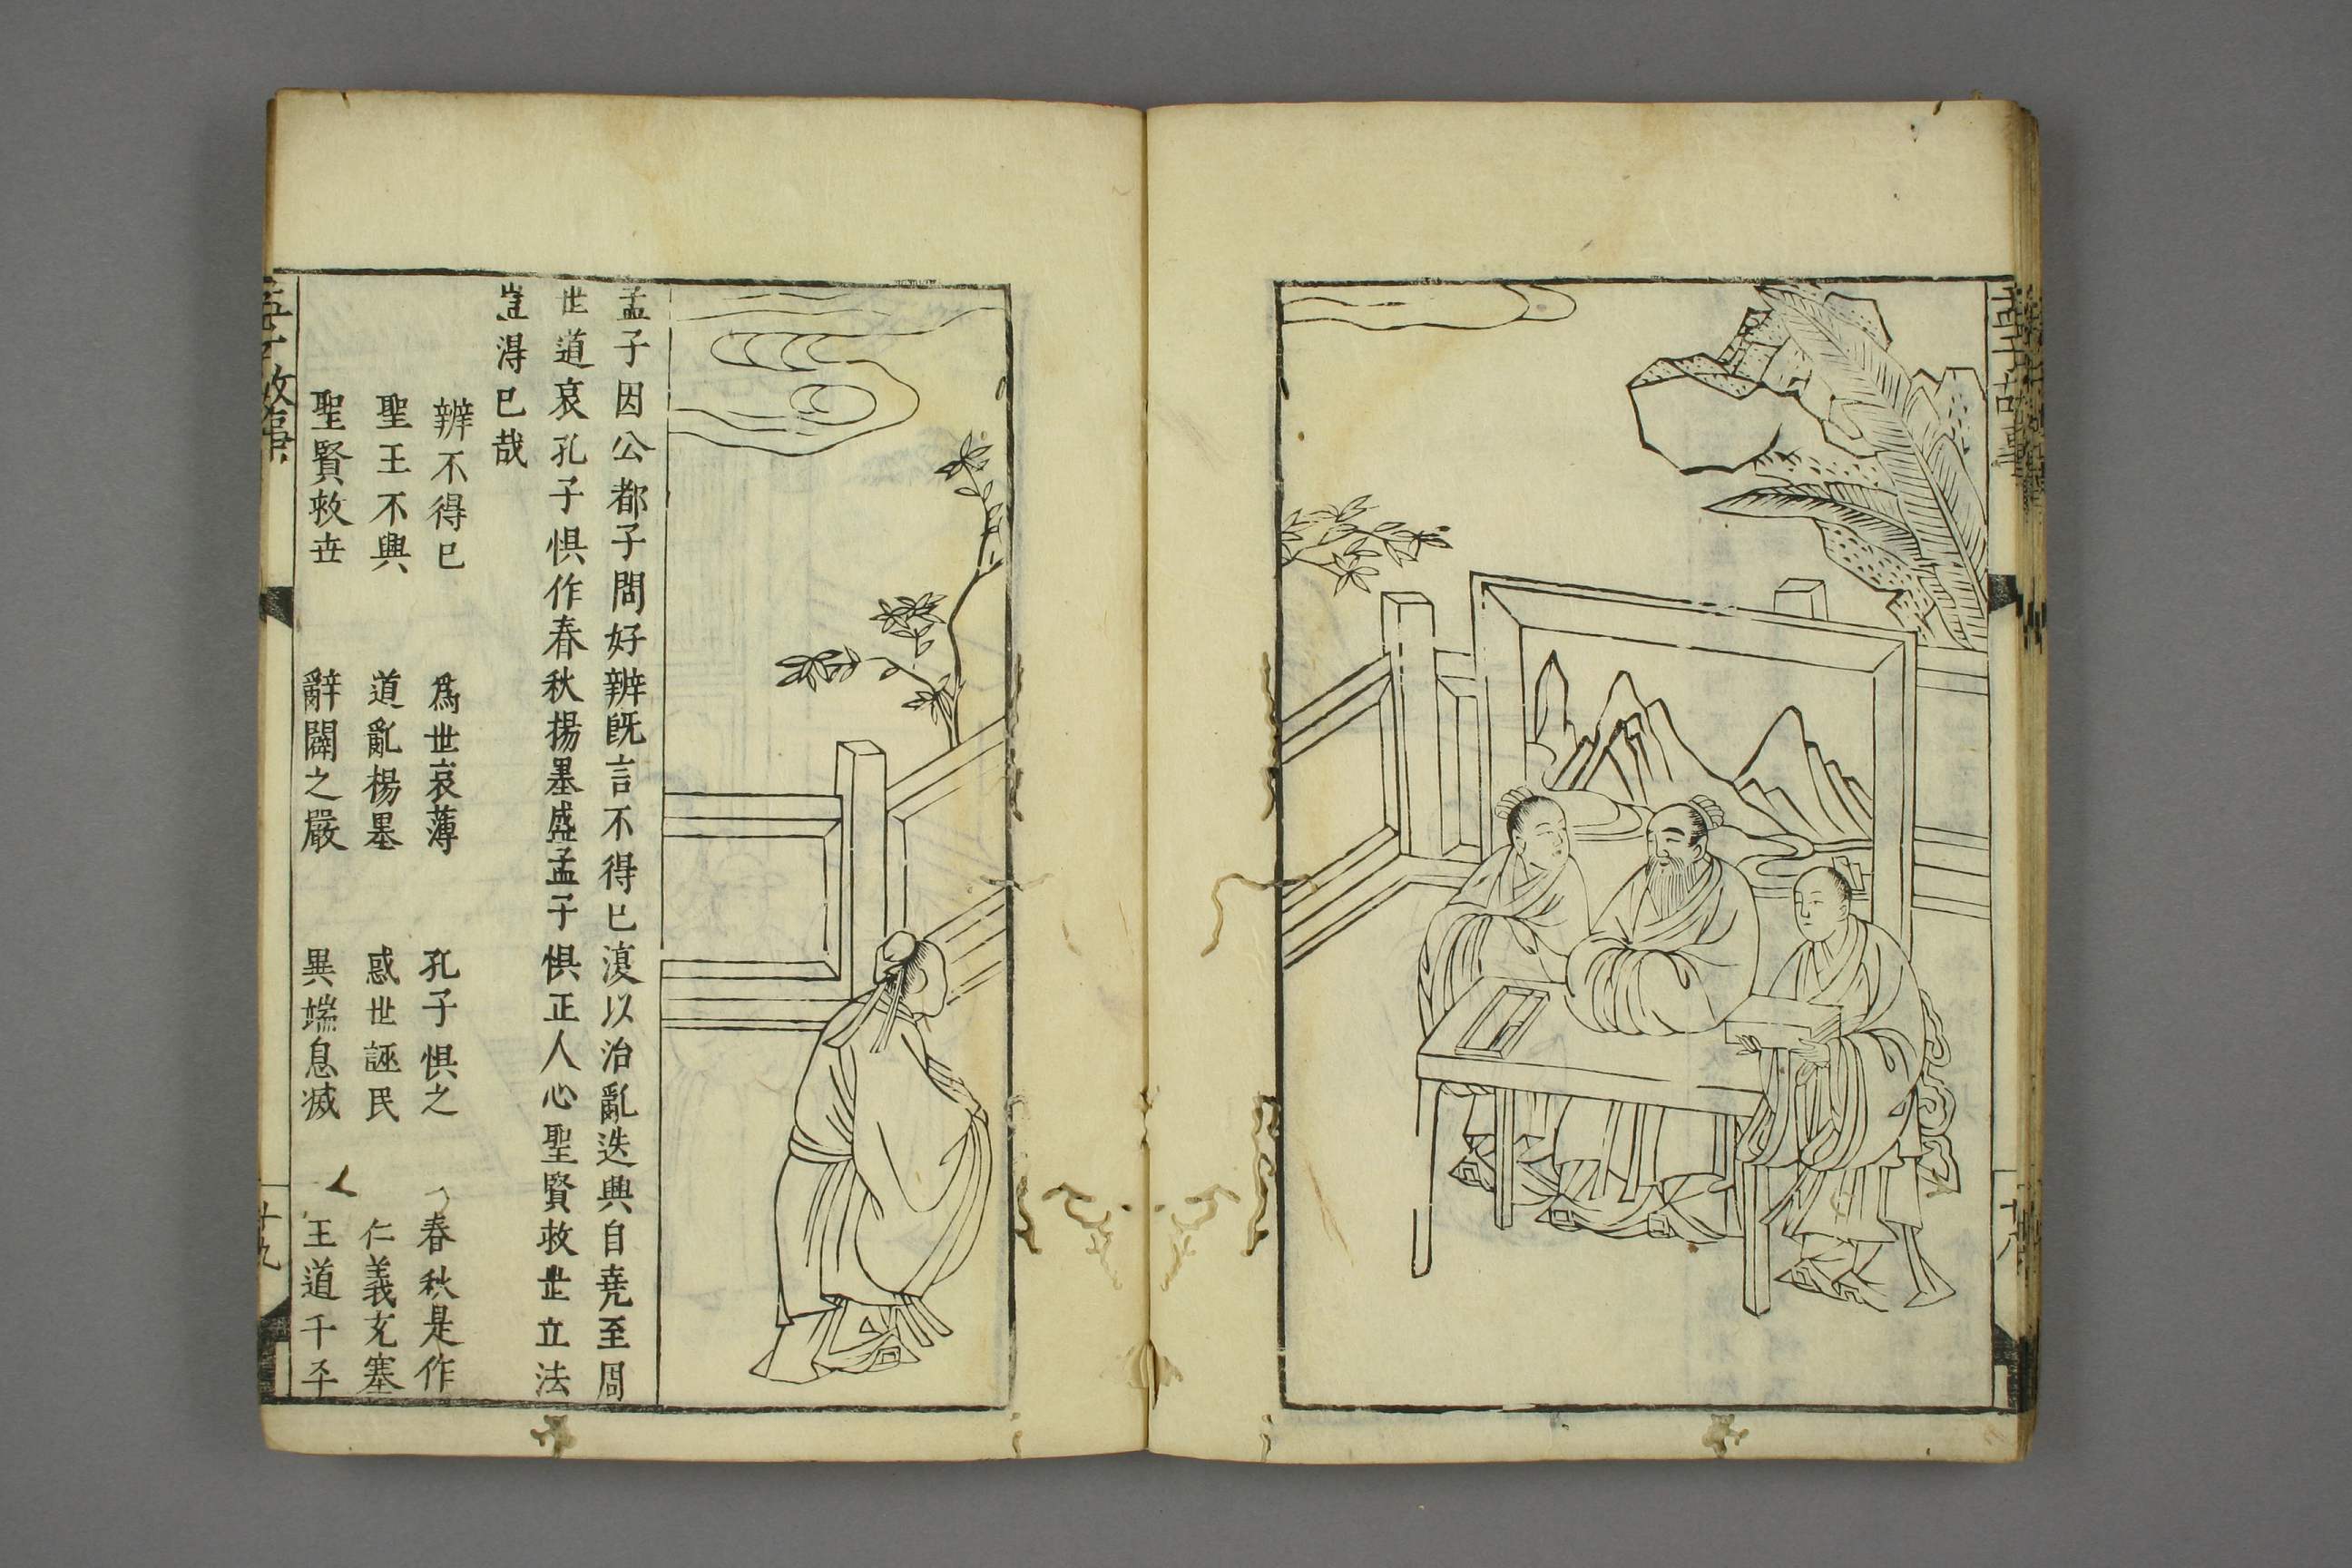 孟子因公都子問好辨旣言不得已復以治亂迭興自堯至周
世道衰孔子惧作春秋揚墨盛孟子惧正人心聖賢救世立法
豈得已哉
辨不得已 為世衰薄 孔子惧之 春秋是作
聖王不興 道亂楊墨 惑世誣民 仁義充塞
聖賢救世 辭闢之嚴 異端息滅 王道平
孟子故事 十九